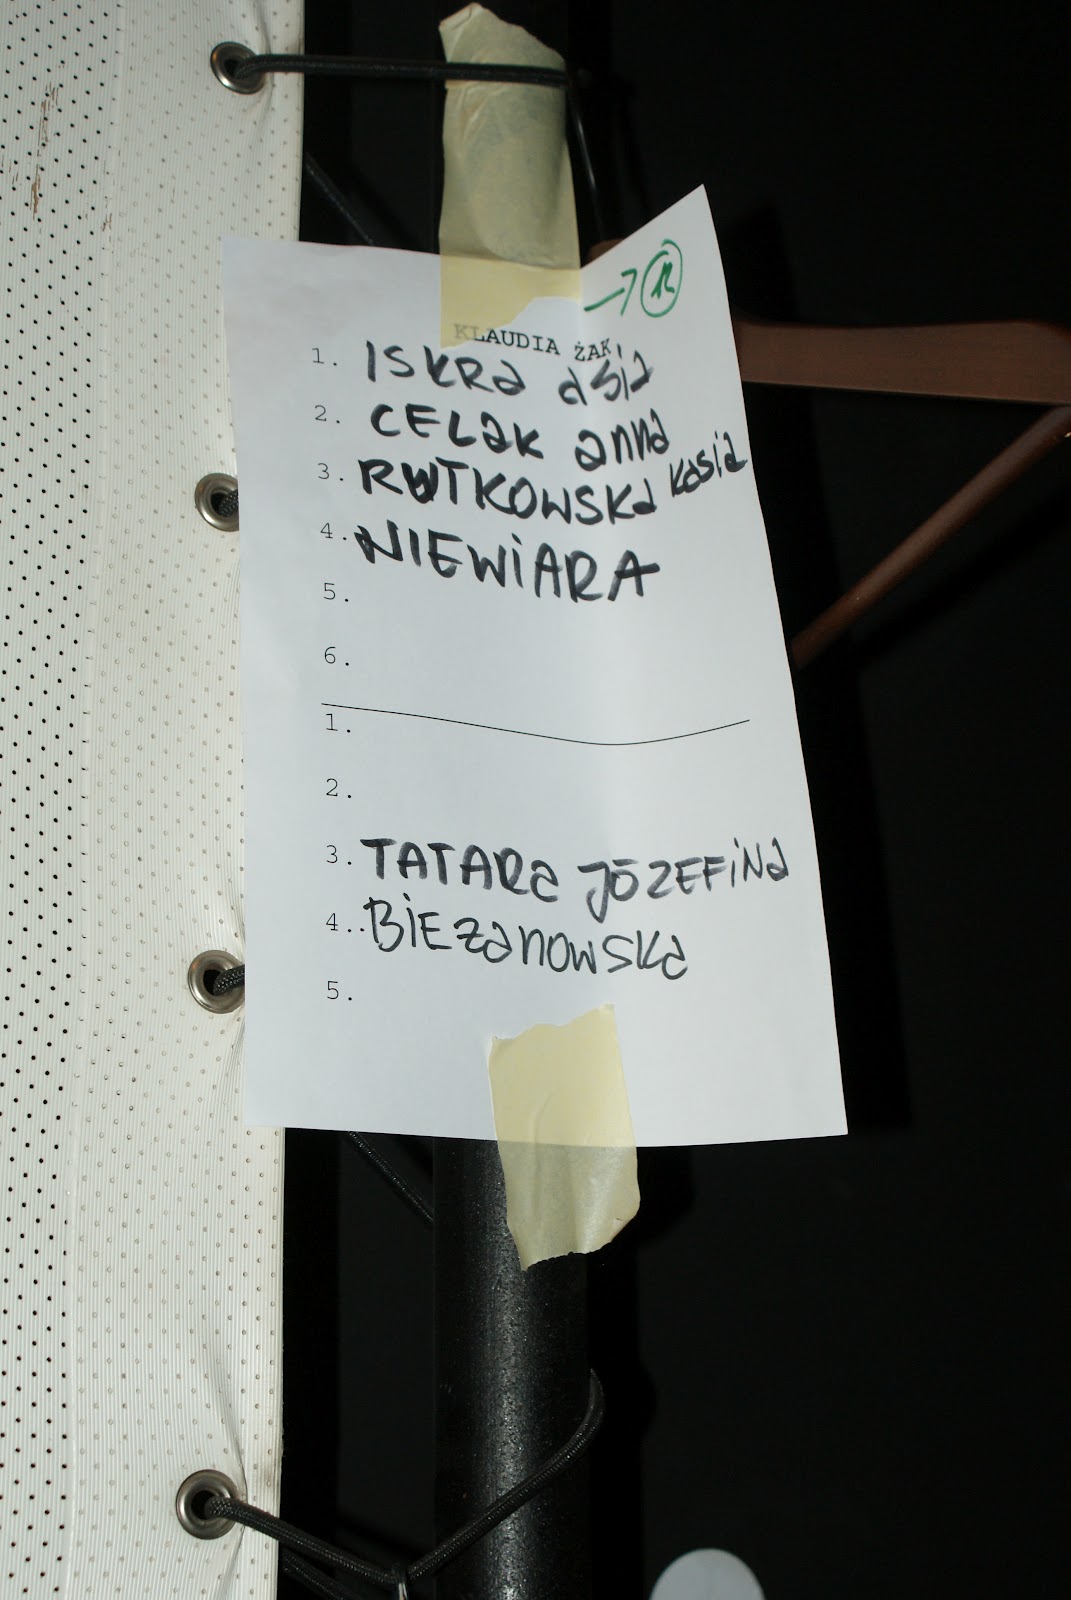 KLAUDIA ŻAK
1. ISKRa aSia
2. CELaK anna
3. RUTKOWSKa Kasia
4. NIEWiARA
5.
6.
1.
2.
3. TATARa JÓZEFiNa
4. BiEzanowSKa
5.